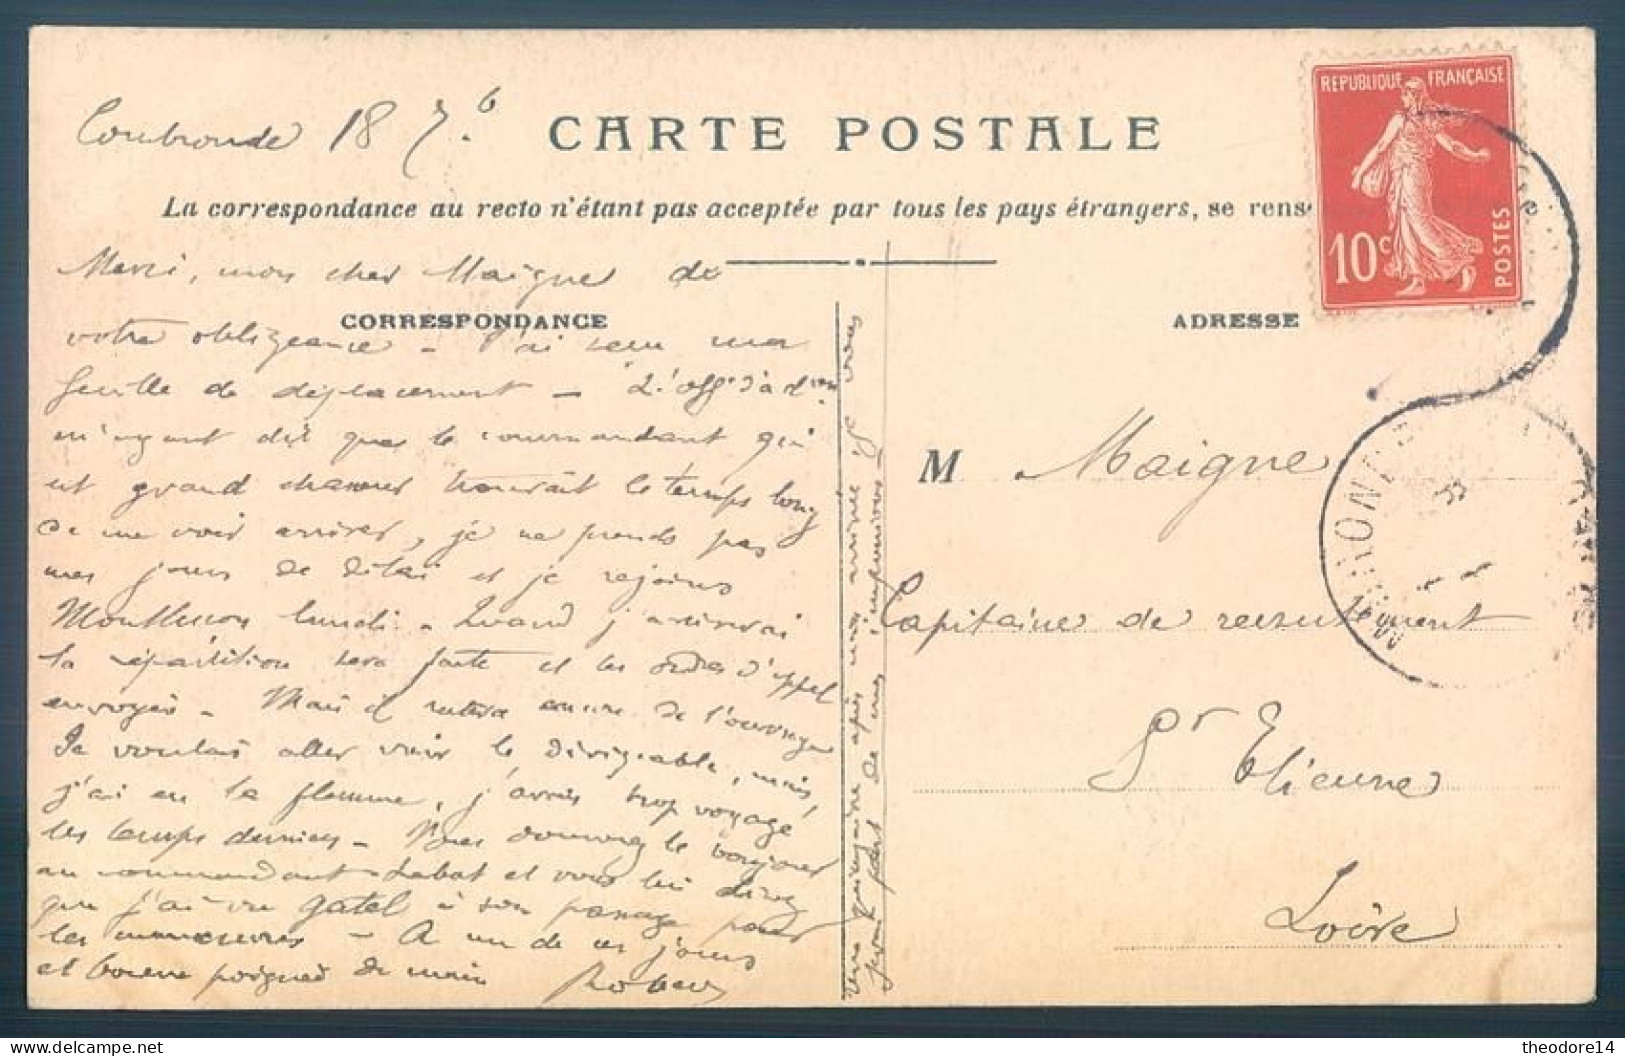 Combronde 18 7.b
CARTE POSTALE
La correspondance au recto n'étant pas acceptée par tous les pays étrangers, se rens
REPUBLIQUE FRANÇAISE
10c
POSTES
Merci, mon cher Maigne de
CORRESPONDANCE
votre obligeance - J'ai reçu ma
feuille de déplacement - L'off. d'
m'ayant dit que le commandant qui
est grand chasseur trouvait le temps long
de me voir arriver, je ne prends pas
mes jours de délai et je rejoins
Montluçon lundi - Quand j'arriverai
la répartition sera faite et les ordres d'appel
envoyés - Mais il restera encore de l'ouvrage
Je voulais aller voir le dirigeable, mais
j'ai eu la flemme, j'avais trop voyagé
les temps derniers - Vous donnerez le bonjour
au commandant Labat et vous lui direz
que j'ai vu Gatel à son passage pour
les manoeuvres - A un de ces jours
et bonne poignée de main Robert
après mon arrivée je vous
ferai part de mes impressions -
ADRESSE
M Maigne
Capitaine de recrutement
St Etienne
Loire
theodore14